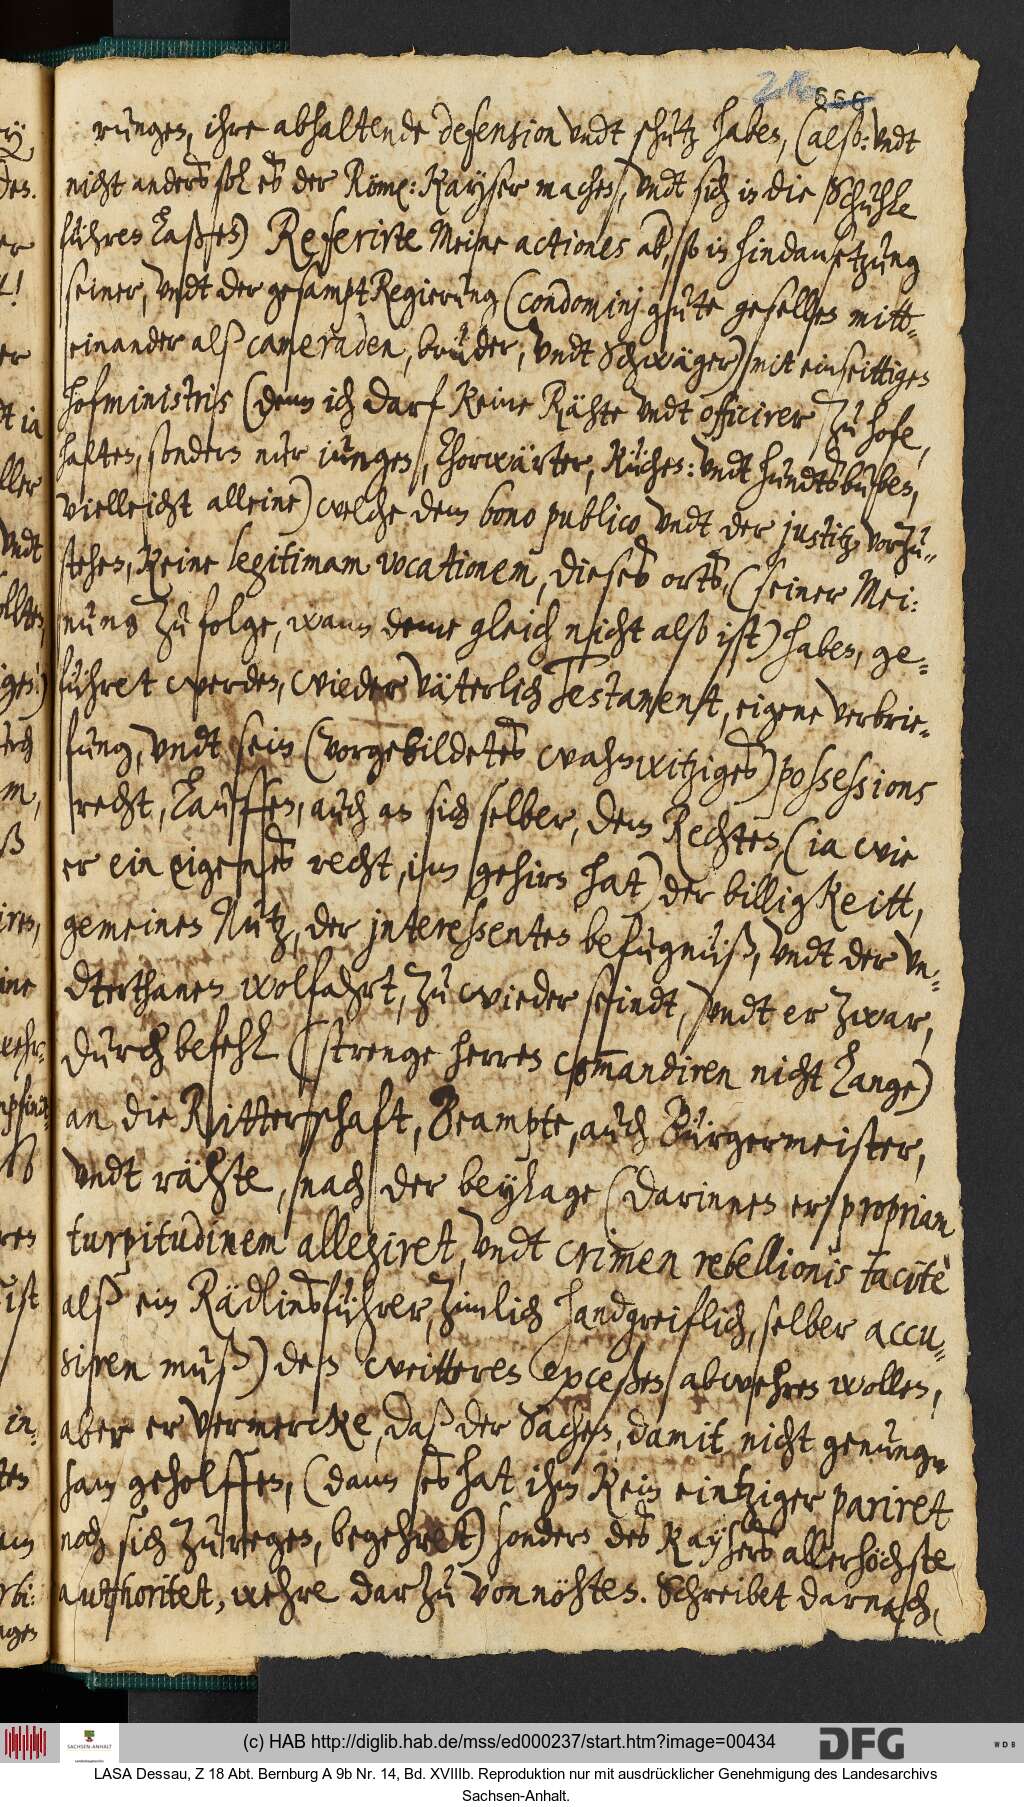 666
rungen, ihre abhaltende defension undt schutz haben, (also: undt
nicht anderß sol eß der Röm: Kayser machen, undt sich in die Schuhle
führen laßen) Referirte Meine actiones ab, so in hindansetzung
seiner, undt der gesampt Regierung (condominj gute gesellen mitt-
einander alß cameraden, brüder, undt Schwäger) mit einseittigen
hofministris (denn ich darf Keine Rähte undt officirer zu hofe,
halten, sondern nur iungen, Thorwärter, Küchen: undt hundtsbuben,
vielleicht alleine) welche dem bono publico undt der justitz vorzu-
stehen, Keine legitimam vocationem, dieses orts, (seiner Mei:
nung zu folge, wann deme gleich nicht also ist) haben, ge-
führet werden, wieder väterlich Testament, eigene verbrie-
fung, undt sein (vorgebildetes wahnwitziges) possessions
recht, lauffen, auch an sich selber, dem Rechten, (ia wie
er ein eigenes recht, im gehirn hat) der billigkeitt,
gemeinen Nutz, der jnteressenten befugnüß, undt der un-
dterthanen wolfahrt, zu wieder seindt, undt er zwar,
durch befehl (strenge herren com̄andiren nicht lange)
an die Ritterschaft, Beampte, auch Bürgermeister,
undt rähte, nach der beylage (darinnen er propriam
turpitudinem allegiret, undt crimen rebellionis tacitè
alß ein Rädlinsführer, zimlich handgreiflich, selber accu-
siren muß) den weitteren exceßen abwehren wollen,
aber er vermercke, daß der Sachen, damit nicht genung-
sam geholffen, (dann es hat ihm Kein eintziger pariret
noch sich zu regen, begehret) sondern des Kaysers allerhöchste
authoritet, wehre darzu vonnöhten. Schreibet darnach,
(c) HAB http://diglib.hab.de/mss/ed000237/start.htm?image=00434
SACHSEN-ANHALT
DFG
WDB
LASA Dessau, Z 18 Abt. Bernburg A 9b Nr. 14, Bd. XVIIIb. Reproduktion nur mit ausdrücklicher Genehmigung des Landesarchivs
Sachsen-Anhalt.